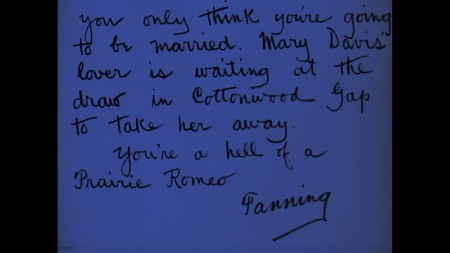 you only think you're going
to be married. Mary Davis'
lover is waiting at the
draw in Cottonwood Gap
to take her away.
You're a hell of a
Prairie Romeo
Fanning